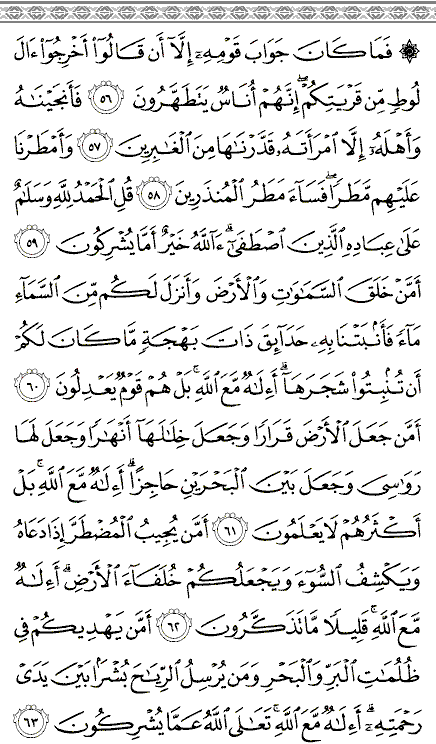 ۞ فَمَا كَانَ جَوَابَ قَوْمِهِۦٓ إِلَّآ أَن قَالُوٓا۟ أَخْرِجُوٓا۟ ءَالَ
لُوطٍ مِّن قَرْيَتِكُمْ ۖ إِنَّهُمْ أُنَاسٌ يَتَطَهَّرُونَ ٥٦ فَأَنجَيْنَٰهُ
وَأَهْلَهُۥٓ إِلَّا ٱمْرَأَتَهُۥ قَدَّرْنَٰهَا مِنَ ٱلْغَٰبِرِينَ ٥٧ وَأَمْطَرْنَا
عَلَيْهِم مَّطَرًا ۖ فَسَآءَ مَطَرُ ٱلْمُنذَرِينَ ٥٨ قُلِ ٱلْحَمْدُ لِلَّهِ وَسَلَٰمٌ
عَلَىٰ عِبَادِهِ ٱلَّذِينَ ٱصْطَفَىٰٓ ۗ ءَآللَّهُ خَيْرٌ أَمَّا يُشْرِكُونَ ٥٩
أَمَّنْ خَلَقَ ٱلسَّمَٰوَٰتِ وَٱلْأَرْضَ وَأَنزَلَ لَكُم مِّنَ ٱلسَّمَآءِ
مَآءً فَأَنۢبَتْنَا بِهِۦ حَدَآئِقَ ذَاتَ بَهْجَةٍ مَّا كَانَ لَكُمْ
أَن تُنۢبِتُوا۟ شَجَرَهَآ ۗ أَءِلَٰهٌ مَّعَ ٱللَّهِ ۚ بَلْ هُمْ قَوْمٌ يَعْدِلُونَ ٦٠
أَمَّن جَعَلَ ٱلْأَرْضَ قَرَارًا وَجَعَلَ خِلَٰلَهَآ أَنْهَٰرًا وَجَعَلَ لَهَا
رَوَٰسِىَ وَجَعَلَ بَيْنَ ٱلْبَحْرَيْنِ حَاجِزًا ۗ أَءِلَٰهٌ مَّعَ ٱللَّهِ ۚ بَلْ
أَكْثَرُهُمْ لَا يَعْلَمُونَ ٦١ أَمَّن يُجِيبُ ٱلْمُضْطَرَّ إِذَا دَعَاهُ
وَيَكْشِفُ ٱلسُّوٓءَ وَيَجْعَلُكُمْ خُلَفَآءَ ٱلْأَرْضِ ۗ أَءِلَٰهٌ
مَّعَ ٱللَّهِ ۚ قَلِيلًا مَّا تَذَكَّرُونَ ٦٢ أَمَّن يَهْدِيكُمْ فِى
ظُلُمَٰتِ ٱلْبَرِّ وَٱلْبَحْرِ وَمَن يُرْسِلُ ٱلرِّيَٰحَ بُشْرًۢا بَيْنَ يَدَىْ
رَحْمَتِهِۦٓ ۗ أَءِلَٰهٌ مَّعَ ٱللَّهِ ۚ تَعَٰلَى ٱللَّهُ عَمَّا يُشْرِكُونَ ٦٣